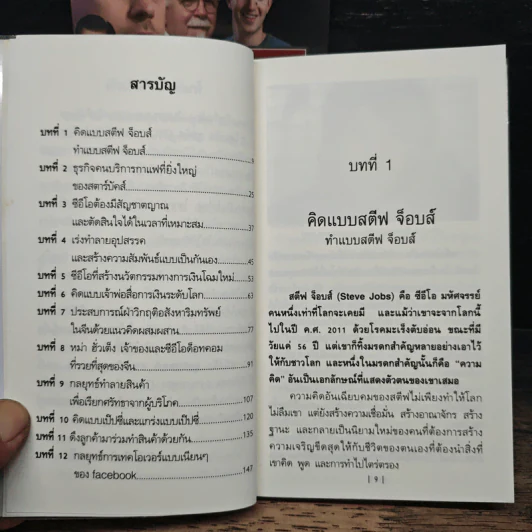 สารบัญ
บทที่ 1 คิดแบบสตีฟ จ็อบส์
ทำแบบสตีฟ จ็อบส์ 9
บทที่ 2 ธุรกิจคนบริการกาแฟที่ยิ่งใหญ่
ของสตาร์บัคส์ 25
บทที่ 3 ซีอีโอต้องมีสัญชาตญาณ
และตัดสินใจได้ในเวลาที่เหมาะสม 37
บทที่ 4 เร่งทำลายอุปสรรค
และสร้างความสัมพันธ์แบบเป็นกันเอง 45
บทที่ 5 ซีอีโอที่สร้างนวัตกรรมทางการเงินโฉมใหม่ 53
บทที่ 6 คิดแบบเจ้าพ่อสื่อการเงินระดับโลก 63
บทที่ 7 ประสบการณ์ฝ่าวิกฤติอสังหาริมทรัพย์
ในจีนด้วยแนวคิดผสมผสาน 77
บทที่ 8 หม่า ฮั่วเติ้ง เจ้าของและซีอีโอดอทคอม
ที่รวยที่สุดของจีน 91
บทที่ 9 กลยุทธ์ทำลายสินค้า
เพื่อเรียกศรัทธาจากผู้บริโภค 107
บทที่ 10 คิดแบบเป๊ปซี่และแกร่งแบบเป๊ปซี่ 120
บทที่ 11 ดึงลูกค้ามาร่วมทำสินค้าด้วยกัน 135
บทที่ 12 กลยุทธ์การเทคโอเวอร์แบบเนียนๆ
ของ facebook 147
บทที่ 1
คิดแบบสตีฟ จ็อบส์
ทำแบบสตีฟ จ็อบส์
สตีฟ จ็อบส์ (Steve Jobs) คือ ซีอีโอ มหัศจรรย์
คนหนึ่งเท่าที่โลกจะเคยมี และแม้ว่าเขาจะจากโลกนี้
ไปในปี ค.ศ. 2011 ด้วยโรคมะเร็งตับอ่อน ขณะที่มี
วัยแค่ 56 ปี แต่เขาก็ทิ้งมรดกสำคัญหลายอย่างเอาไว้
ให้กับชาวโลก และหนึ่งในมรดกสำคัญนั้นก็คือ “ความ
คิด” อันเป็นเอกลักษณ์ที่แสดงตัวตนของเขาเสมอ
ความคิดอันเฉียบคมของสตีฟไม่เพียงทำให้โลก
ไม่ลืมเขา แต่ยังสร้างความเชื่อมั่น สร้างอาณาจักร สร้าง
ฐานะ และกลายเป็นนิยามใหม่ของคนที่ต้องการสร้าง
ความเจริญขีดสุดให้กับชีวิตของตนเองที่ต้องนำสิ่งที่
เขาคิด พูด และการทำไปไตร่ตรอง
| 9 |